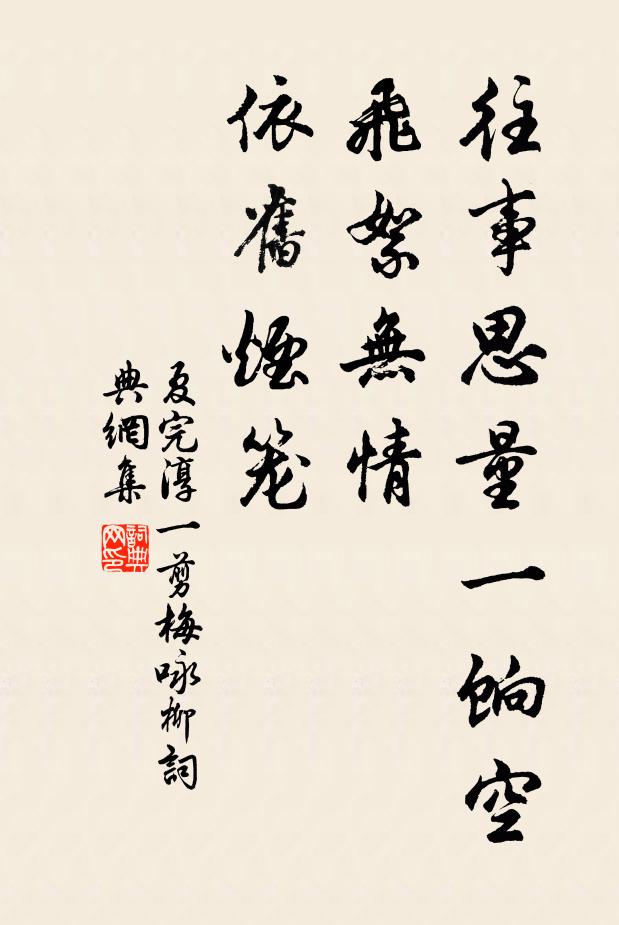 往事思量一餉空
飛絮無情
依舊煙笼
夏完淳一剪梅咏柳詞
典網集
詞典
网印